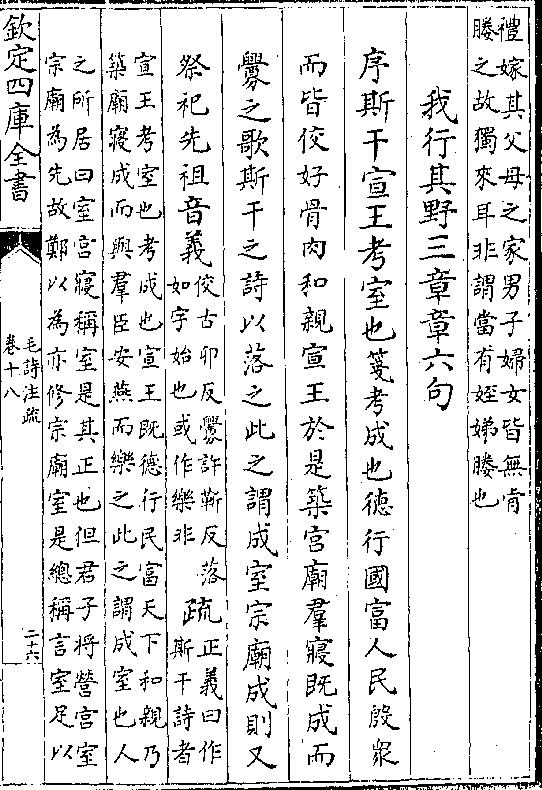 禮嫁其父母之家男子婦女皆無肯
媵之故獨來耳非謂當有姪娣媵也
我行其野三章章六句
序斯干宣王考室也箋考成也德行國富人民殷衆
而皆佼好骨肉和親宣王於是築宫廟羣寢既成而
釁之歌斯干之詩以落之此之謂成室宗廟成則又
祭祀先祖音義佼古卯反釁許靳反落
如字始也或作樂非
疏正義曰作
斯干詩者
宣王考室也考成也宣王既德行民富天下和親乃
築廟寢成而與羣臣安燕而樂之此之謂成室也人
之所居曰室宫寢稱室是其正也但君子將營宫室
宗廟為先故鄭以為亦修宗廟室是總稱言室足以
欽定四庫全書
毛詩注疏
卷十八
二十六